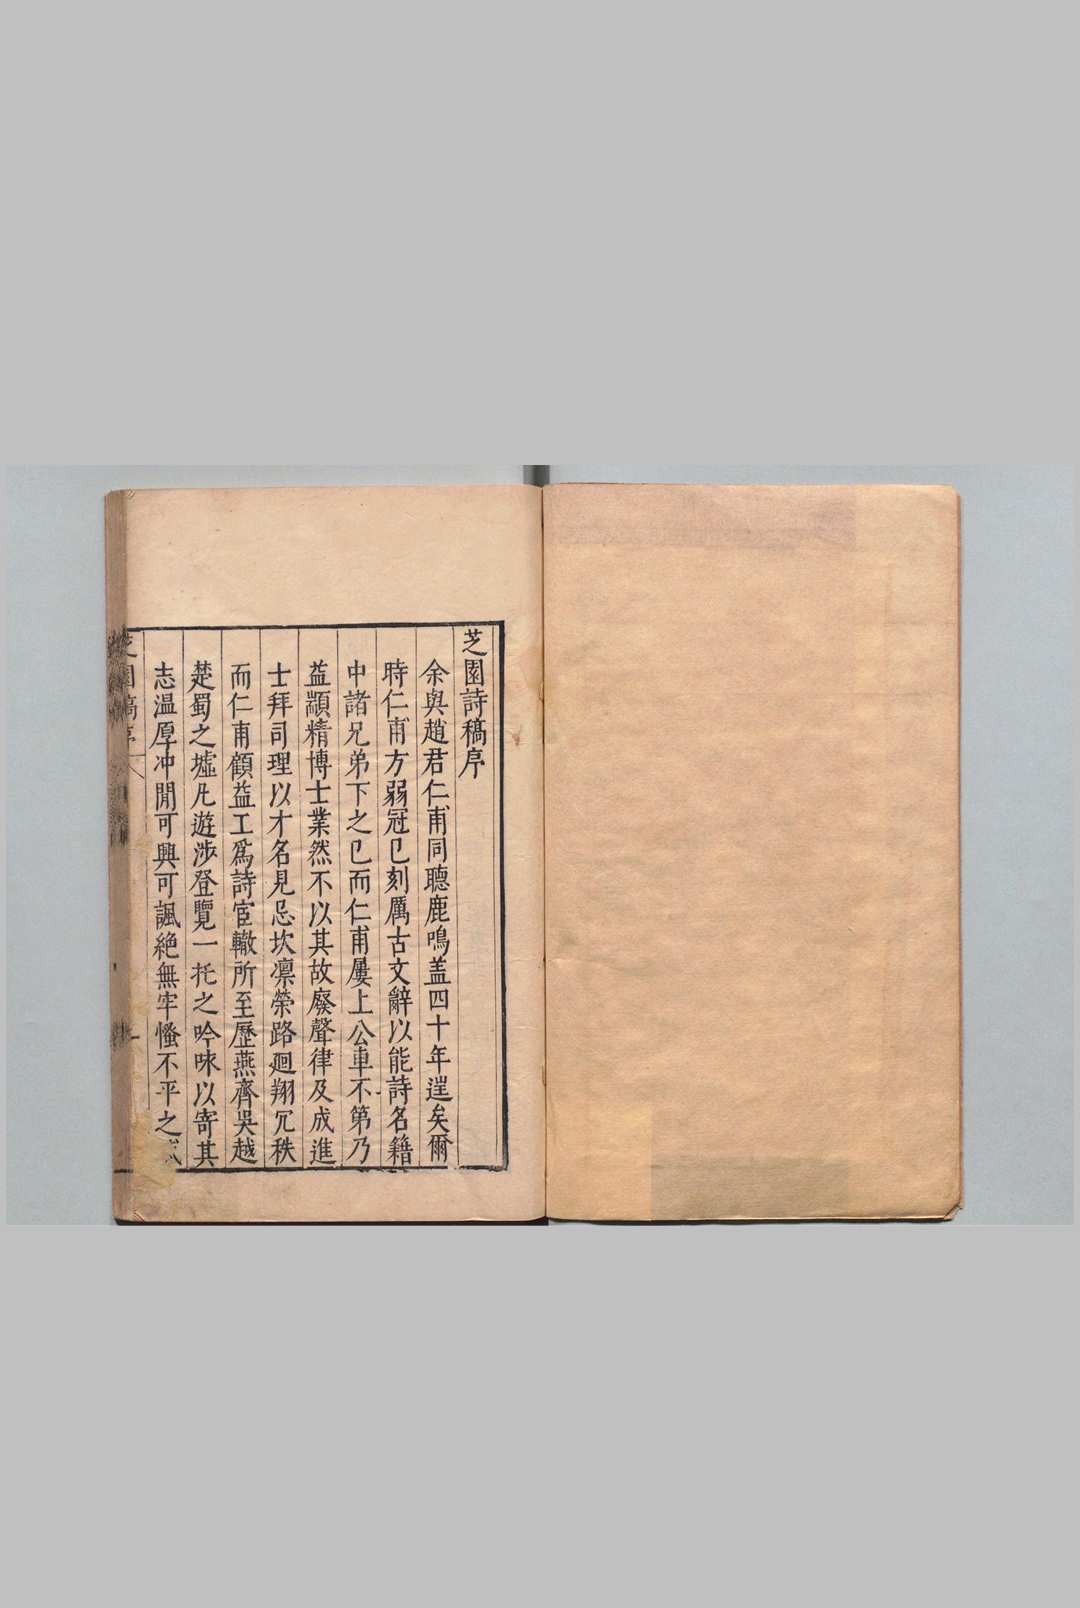 芝園詩稿序
余與趙君仁甫同聽鹿鳴盖四十年逞矣爾
時仁甫方弱冠已刻厲古文辭以能詩名籍
中諸兄弟下之已而仁甫屢上公車不第乃
益顓精博士業然不以其故廢聲律及成進
士拜司理以才名見忌坎凛榮路廻翔冗秩
而仁甫顧益工爲詩宦轍所至歷燕齊吳越
楚蜀之墟凡遊涉登覽一托之吟咏以寄其
志温厚冲閒可興可諷絶無牢慅不平之
芝園稿序
一